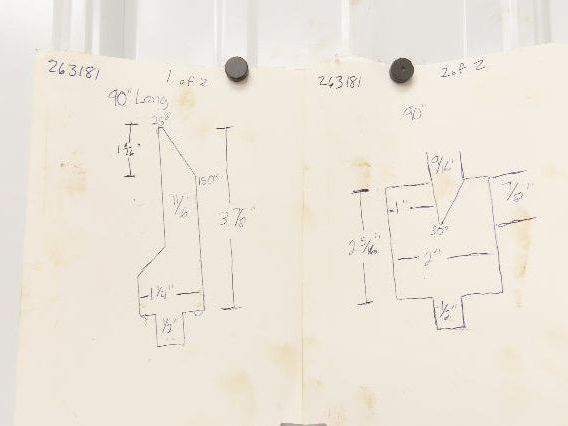 263181
1 of 2
90" Long
25°
150°
11/16"
3 7/8"
1 1/4"
1/2"
263181
2 of 2
90°
9/16"
7/8"
1"
30°
2 5/16"
2"
1/2"